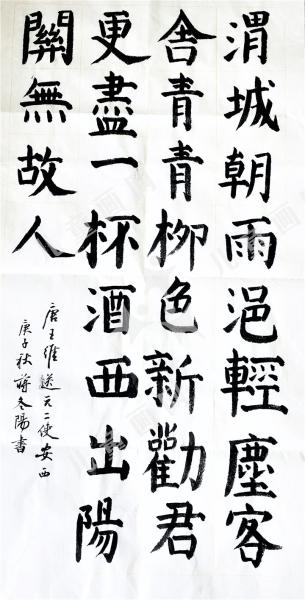 渭城朝雨浥輕塵客
舍青青柳色新勸君
更盡一杯酒西出陽
關無故人
唐王維送元二使安西
庚子秋蔣冬陽書